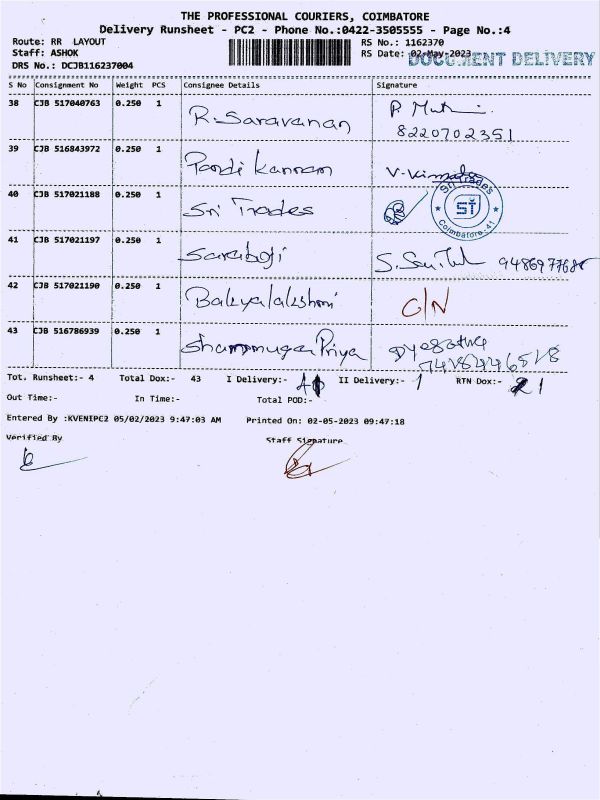 THE PROFESSIONAL COURIERS, COIMBATORE
Delivery Runsheet - PC2 - Phone No.:0422-3505555 - Page No.:4
Route: RR LAYOUT RS No.: 1162370
Staff: ASHOK RS Date: 02-May-2023
DOCUMENT DELIVERY
DRS No.: DCJB116237004
S No Consignment No Weight PCS Consignee Details Signature
38 CJB 517040763 0.250 1 R. Saravanan P. 
8220702351
39 CJB 516843972 0.250 1 Pandi Kannam V. Vimala
40 CJB 517021188 0.250 1 Sri Trades
Sri Trades
ST
Coimbatore-41
41 CJB 517021197 0.250 1 Saraboji
42 CJB 517021190 0.250 1 Bakyalakshmi C/N
43 CJB 516786939 0.250 1 Shanmuga Priya
Tot. Runsheet:- 4 Total Dox:- 43 I Delivery:- II Delivery:- 1 RTN Dox:- 1
Out Time:- In Time:- Total POD:-
Entered By :KVENIPC2 05/02/2023 9:47:03 AM Printed On: 02-05-2023 09:47:18
Verified By Staff Signature